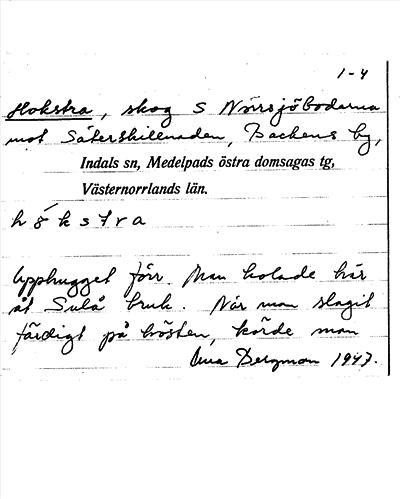 1-4
Hokstra, skog S Norrsjöbodarna
mot Säterskillnaden, Backens by,
Indals sn, Medelpads östra domsagas tg,
Västernorrlands län.
hökstra
Upphugget förr. Man kolade här
åt Sulå bruk. När man slagit
färdigt på hösten, körde man
Bergman 1947.